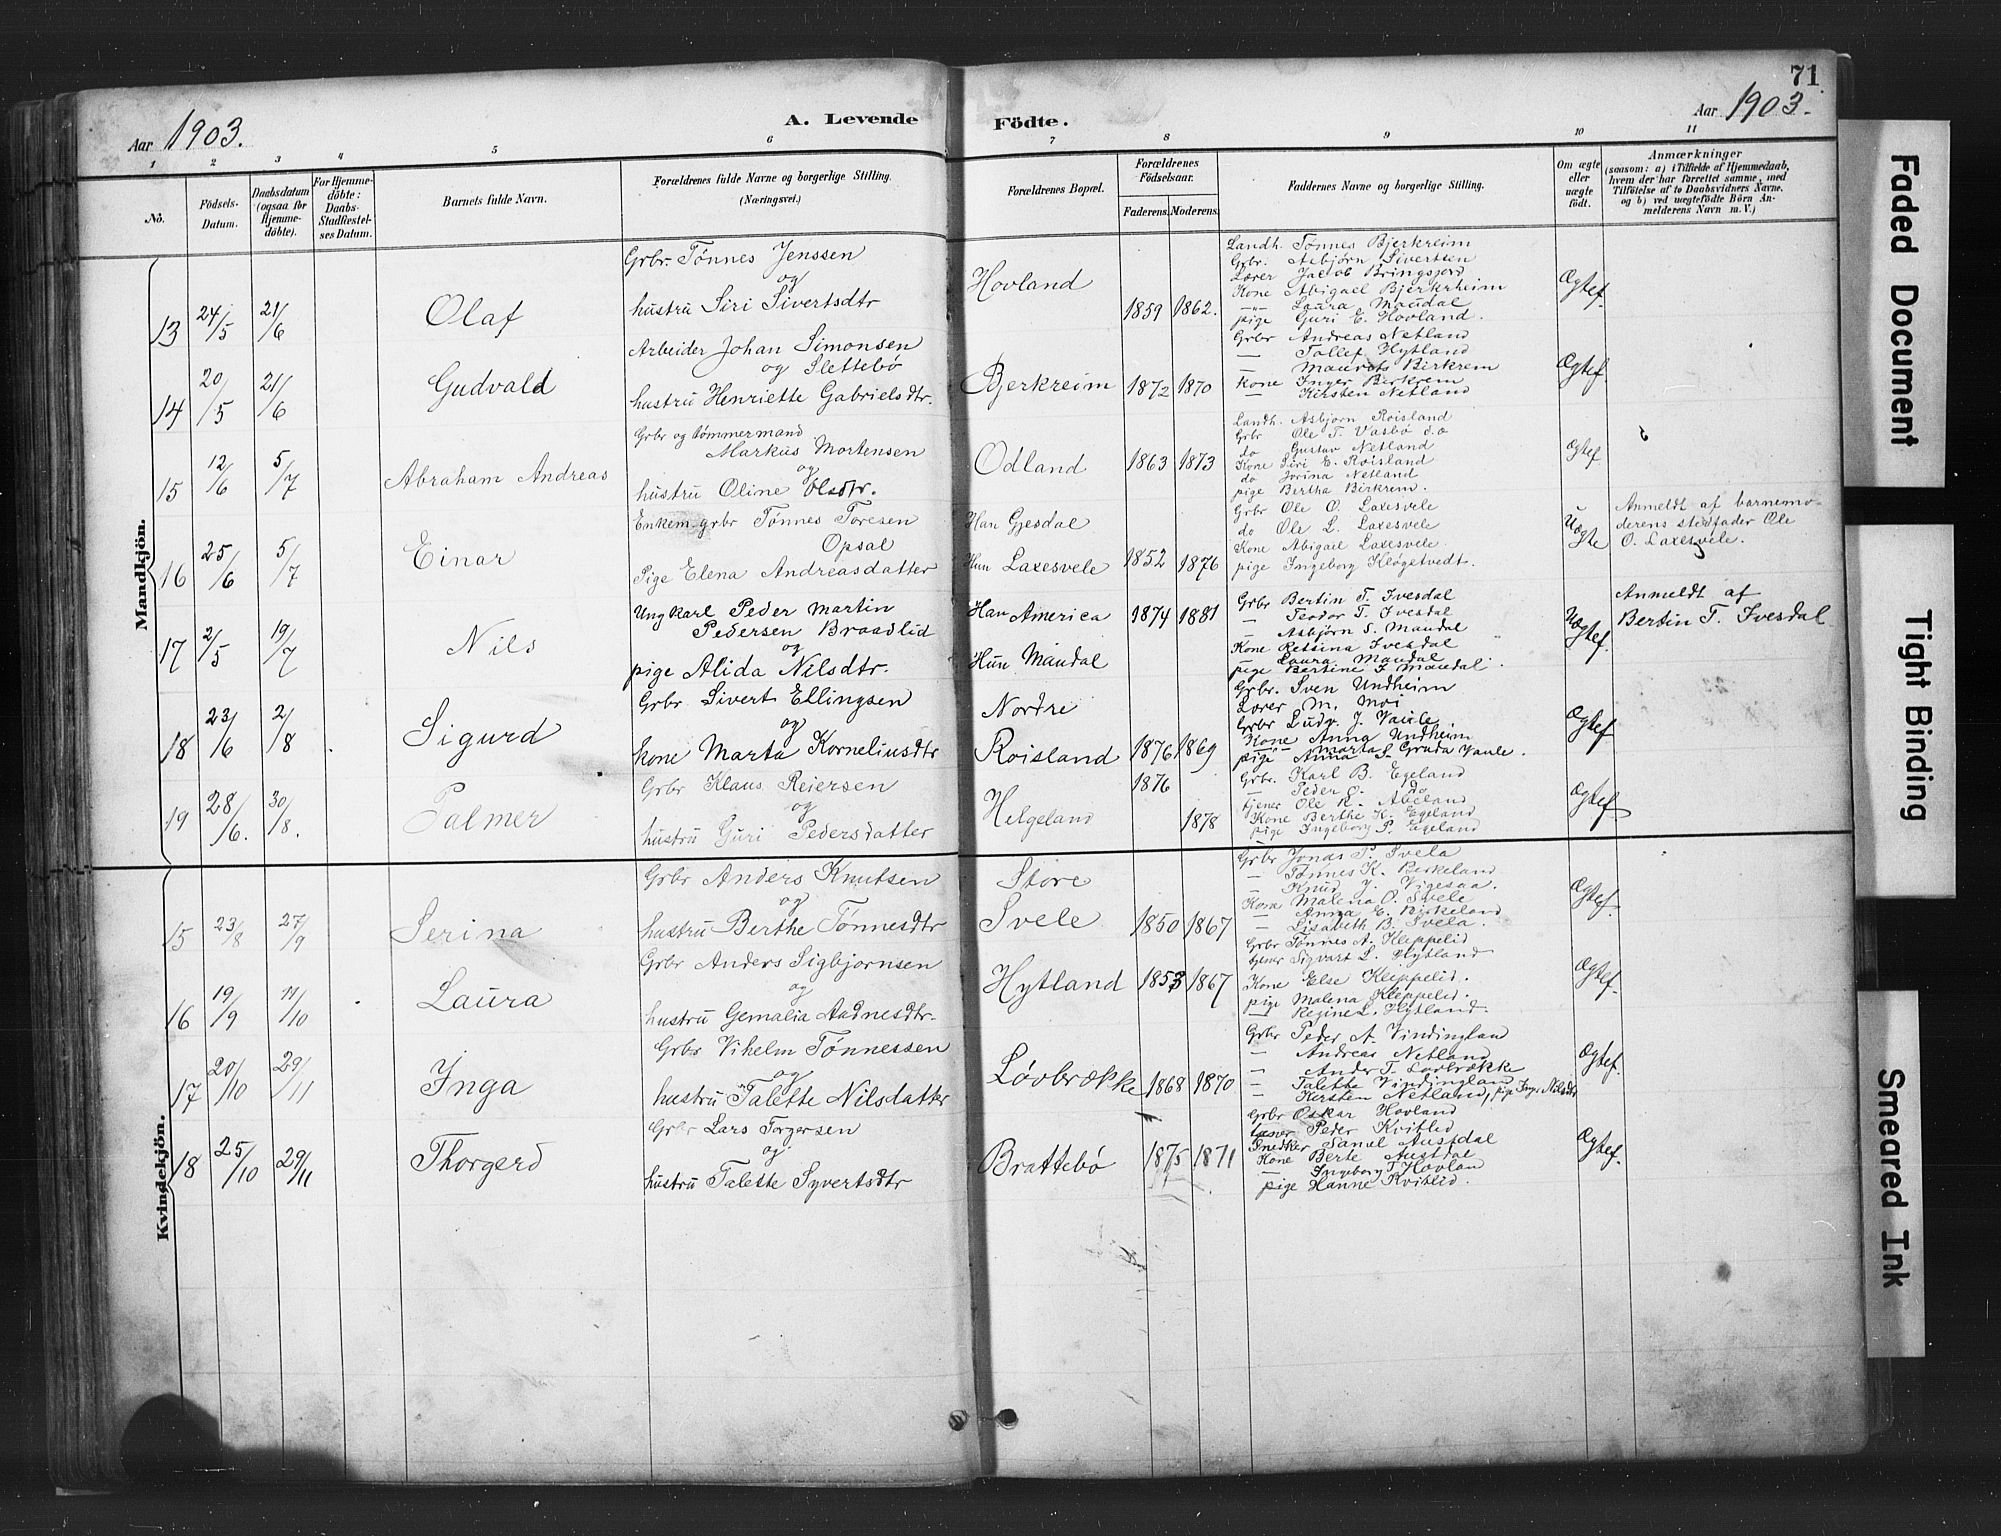 71
Aar 1903.
A. Levende Födte.
Aar 1903.
1 2 3 4 5 6 7 8 9 10 11
No.
Födsels-
Datum.
Daabsdatum
(ogsaa for
Hjemme-
döbte).
For Hjemme-
döbte:
Daabs-
Stadfæstel-
ses Datum.
Barnets fulde Navn.
Forældrenes fulde Navne og borgerlige Stilling.
(Næringsvei.)
Forældrenes Bopæl.
Forældrenes
Födselsaar.
Faderens. Moderens.
Faddernes Navne og borgerlige Stilling.
Om ægte
eller
uægte
födt.
Anmærkninger
(saasom: a) i Tilfælde af Hjemmedaab,
hvem der har forrettet samme, med
Tilföielse af to Daabsvidners Navne.
og b) ved uægtefödte Börn An-
melderens Navn m. V.)
Mandkjön.
13 24/5 21/6 Olaf
Grbr. Tønnes Jenssen
og
hustru Siri Sivertsdtr
Hovland
1859 1862.
Landh. Tønnes Bjerkreim
Grbr. Asbjörn Sivertsen
Lærer Jacob Bringsjord
Kone Abigael Bjerkrheim
—"— Laura Maudal
pige Guri E. Hovland.
Ægtef.
14 20/5 21/6 Gudvald
Arbeider Johan Simonsen
og Slettebø
hustru Henriette Gabrielsdtr.
Bjerkreim 1872 1870
Grbr Andreas Netland
— Tollef Hytland
— Maurits Birkrem
Kone Inger Birkrem
— Kirsten Netland
Ægtef.
15 12/6 5/7 Abraham Andreas
Grbr og tømmermand
Markus Mortensen
og
hustru Oline Olsdtr.
Odland 1863 1873
Landh. Asbjørn Røisland
Grbr Ole T. Vasbø d.o
do Gustav Netland
Kone Siri E. Røisland
do Jorina Netland
pige Bertha Birkrem.
Ægtef
16 25/6 5/7 Einar
Enkem. grbr Tønnes Toresen
Opsal
Pige Elena Andreasdatter
Han Gjesdal
Hun Laxesvele 1852 1876
Grbr Ole O. Laxesvele
do Ole L. Laxesvele
Kone Abigael Laxesvele.
pige Ingeborg Kløgetvedt.
Uægte
Anmeldt af barnemo-
derens stedfader Ole
O. Laxesvele.
17 2/5 19/7 Nils
Ungkarl Peder Martin
Pedersen Braadlid
og
pige Alida Nilsdtr.
Han America 1874 1881
Hun Maudal
Grbr Bertin T. Ivesdal
— Teodor T. Ivesdal
— Asbjørn S. Maudal
Kone Retsina Ivesdal
— Laura Maudal
pige Bertine J Maudal.
Uægtef.
Anmeldt af
Bertin T. Ivesdal
18 23/6 2/8 Sigurd
Grbr Sivert Ellingsen
og
kone Marta Korneliusdtr
Nordre
Roisland 1876 1869
Grbr. Sven Undheim
Lærer M. Moi
Grbr Ludv. J. Vaule
Kone Anna Undheim
pige Anna S. Gruda Vaule.
Ægtef
19 28/6. 30/8. Palmer
Grbr Klaus Reiersen
og
hustru Guri Pedersdatter
Helgeland
1876 1878
Grbr. Karl B. Egeland
— Peder O. do
tjener Ole K. Abeland
Kone Berthe K. Egeland
pige Ingeborg P. Egeland
Ægtef
Kvindekjön.
15 23/8 27/9 Serina
Grbr Anders Knutsen
og
hustru Berthe Tønnesdtr
Store
Svele 1850 1867
Grbr Jonas P. Svela
— Tønnes K. Birkeland
— Knud J. Vigesaa.
Kone Malena O. Svele
— Anna E. Birkeland
— Lisabeth B. Svela.
Ægtef.
16 19/9 11/10 Laura
Grbr Anders Sigbjørnsen
og
hustru Gemalia Aadnesdtr.
Hytland 1853 1867
Grbr Tønnes A. Kleppelid
tjener Sigvart L. Hytland
Kone Else Kleppelid.
pige Malena Kleppelid.
— Regine L. Hytland.
Ægtef.
17 20/10 29/11 Inga
Grbr Vihelm Tønnessen
og
hustru Talette Nilsdatter
Løvbrække 1868 1870
Grbr Peder A. Vindingland
— Andreas Netland
— Ander T. Løvbrække
— Talette Vindingland
— Kirsten Netland, pige Inga Nilsdtr
Ægtef.
18 25/10 29/11 Thorgerd
Grbr Lars Torgersen
og
hustru Talette Syvertsdtr
Brattebø 1875 1871
Grbr Oskar Hovland
tjener Peder Kvitlid
Snedker Samel Austdal
Kone Berte Austdal
— Ingeborg T Hovlan
pige Hanne Kvitlid.
Ægtef.
Faded Document
Tight Binding
Smeared Ink